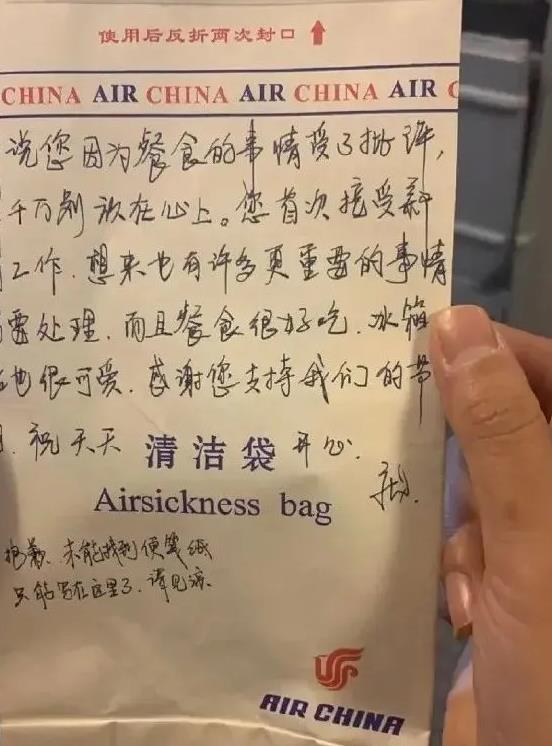 使用后反折两次封口
CHINA AIR CHINA AIR CHINA AIR
说您因为餐食的事情受了批评,
千万别放在心上。您首次接受新
工作.想来也有许多更重要的事情
需处理.而且餐食很好吃.冰箱
也很可爱.感谢您支持我们的节
祝天天 清洁袋 开心.
Airsickness bag
抱歉.未能找到便笺纸
只能写在这里了.请见谅.
AIR CHINA